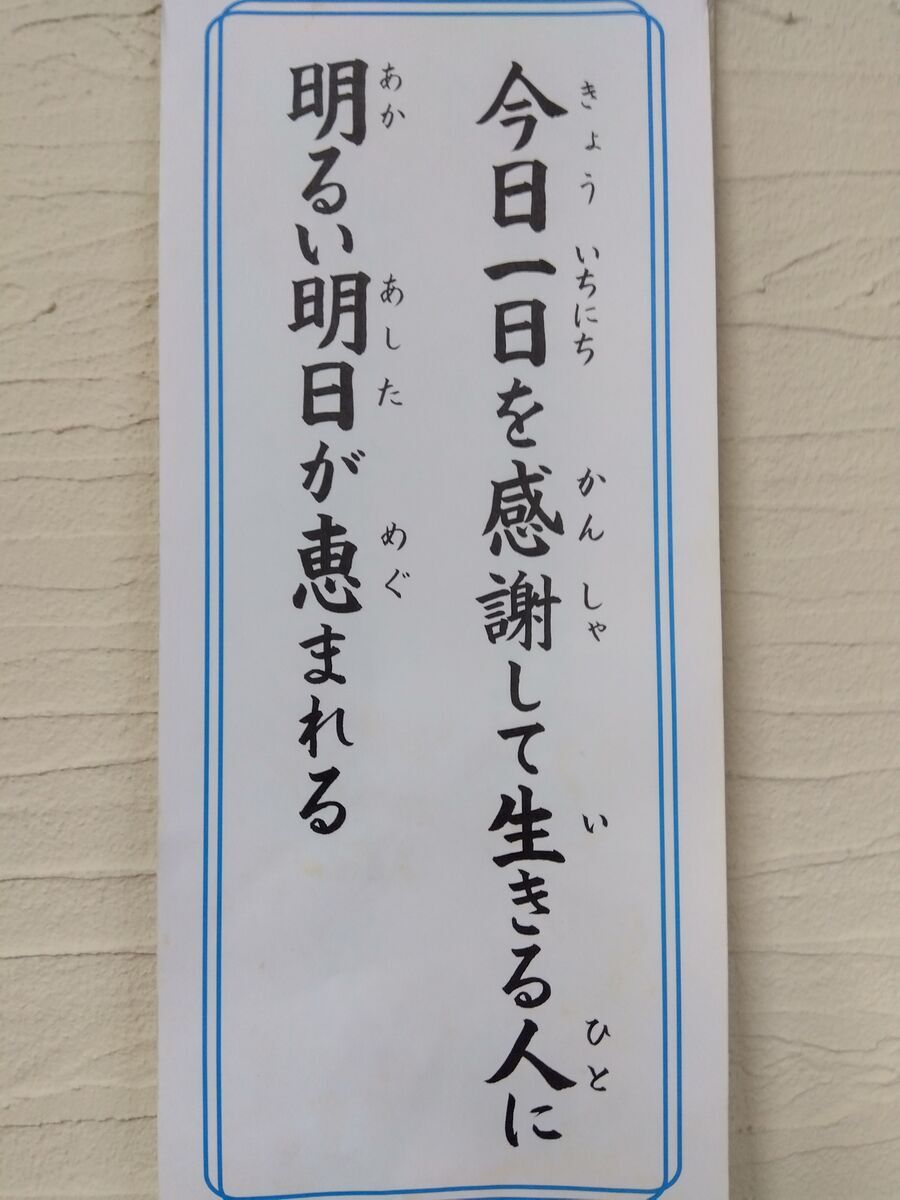 今日一日を感謝して生きる人に
きょう いちにち かんしゃ い ひと
明るい明日が恵まれる
あか あした めぐ